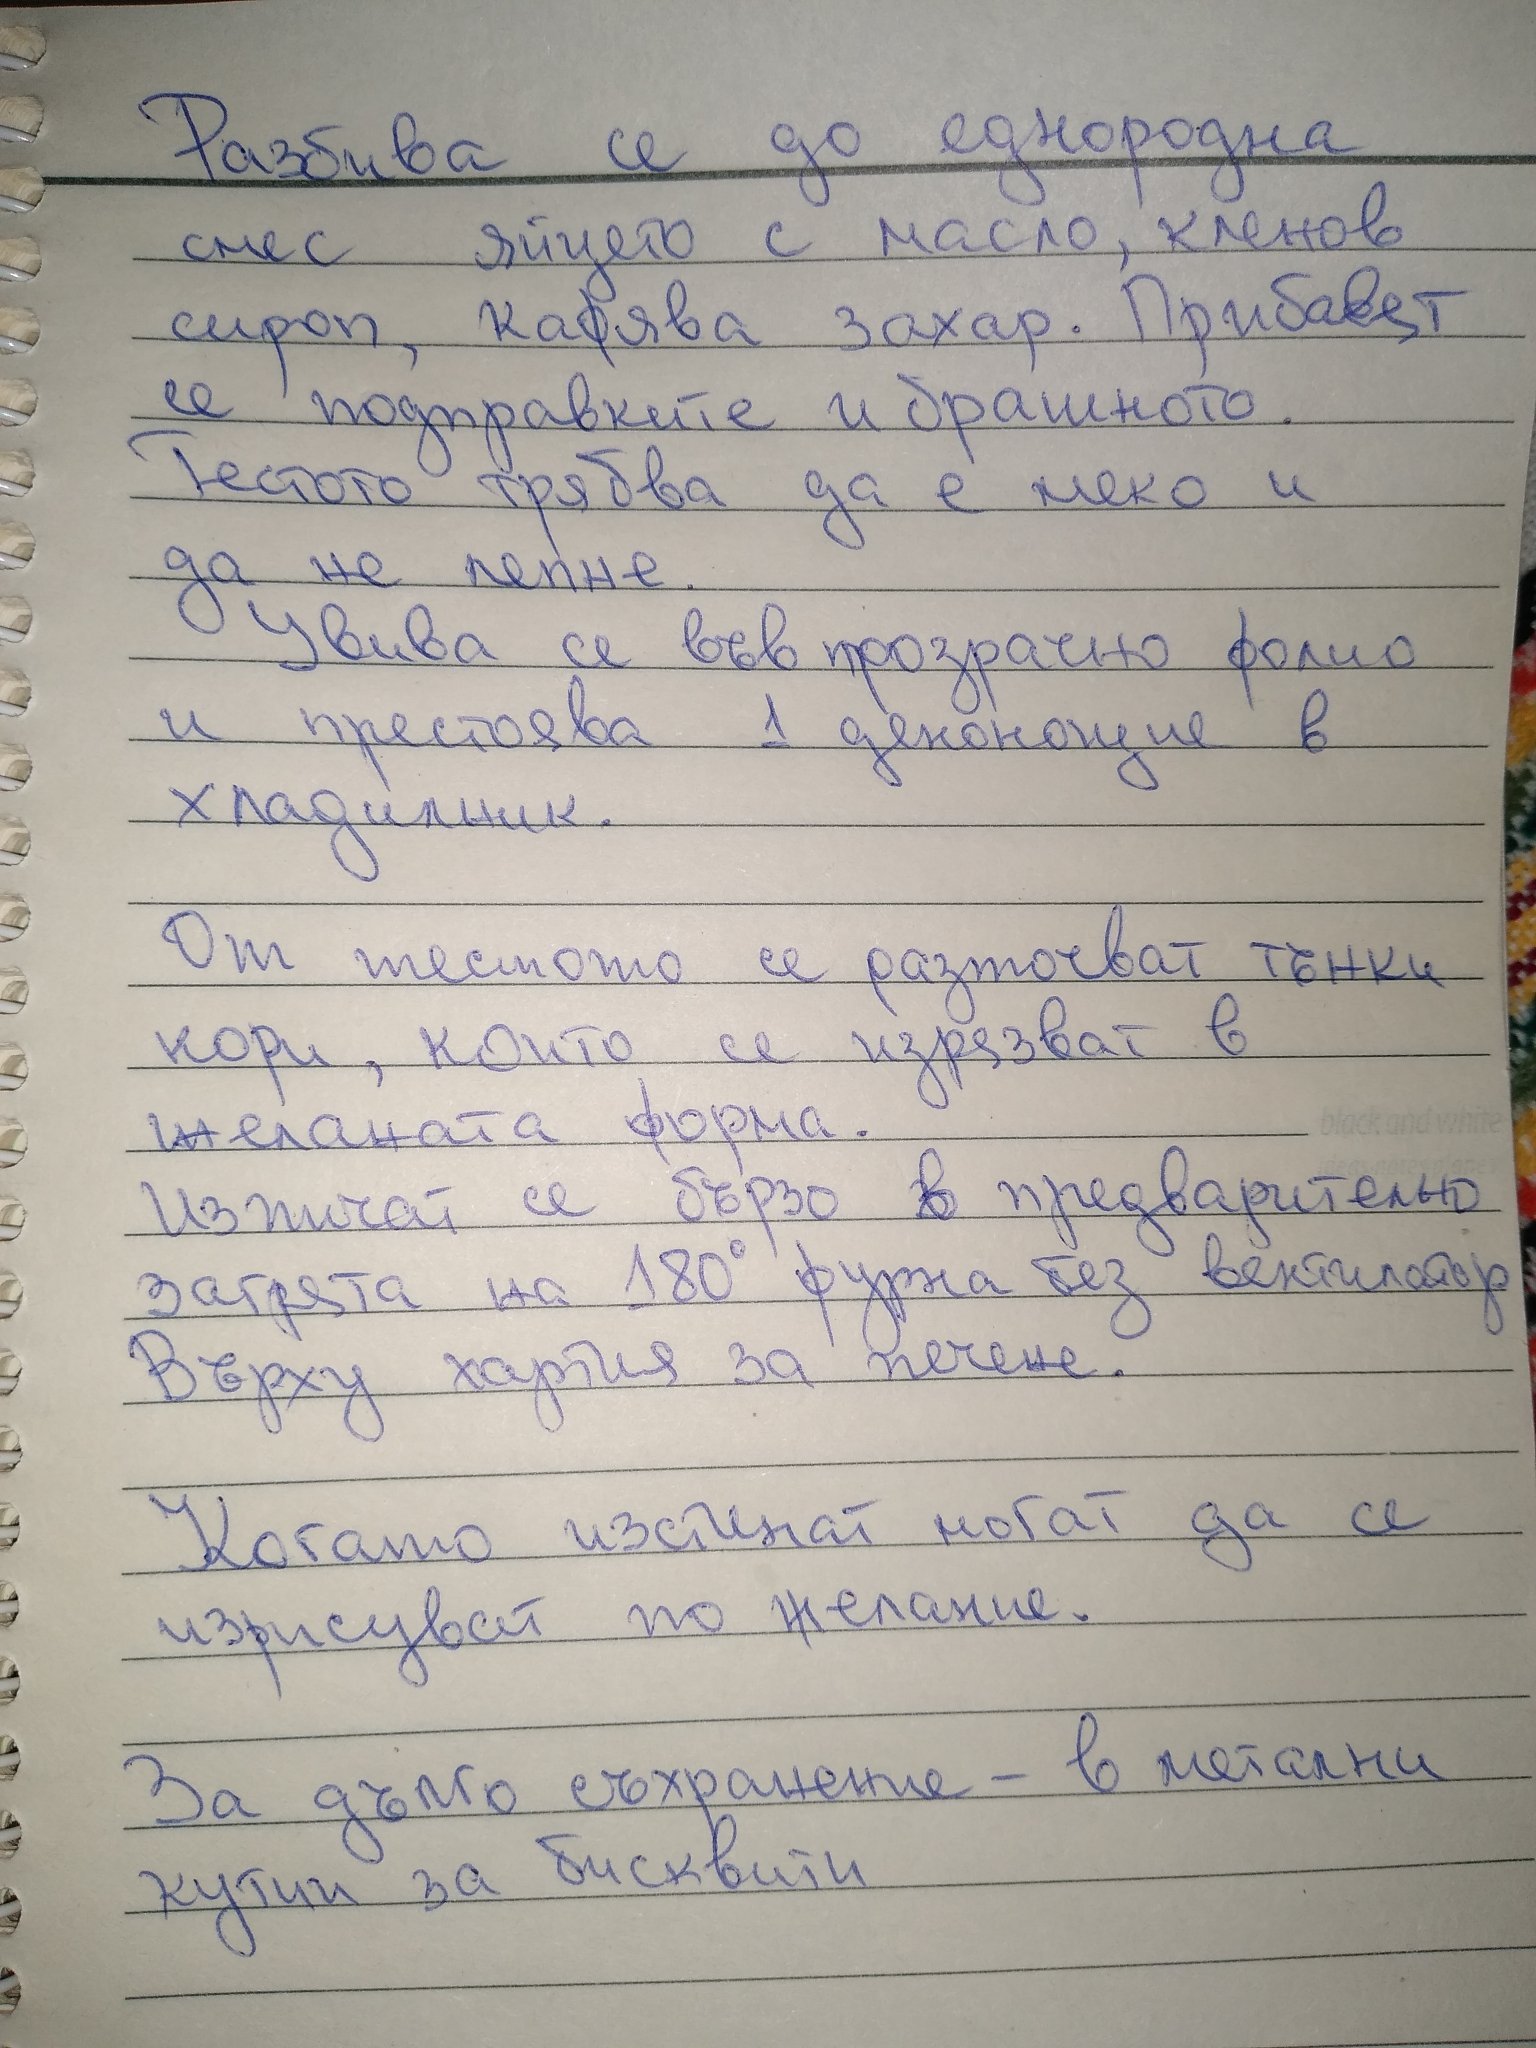 Разбива се до еднородна
смес яйцето с масло, кленов
сироп, кафява захар. Прибавят
се подправките и брашното.
Тестото трябва да е меко и
да не лепне.
Увива се във прозрачно фолио
и престоява 1 денонощие в
хладилник.
От тестото се разточват тънки
кори, които се изрязват в
желаната форма.
black and white
Изпичат се бързо в предварително
загрята на 180° фурна без вентилатор
Върху хартия за печене.
Когато изстинат могат да се
изрисуват по желание.
За дълго съхранение - в метални
кутии за бисквити